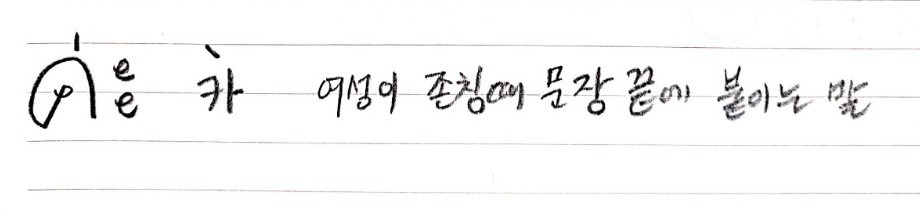 ค่ะ 캬 여성이 존칭때 문장 끝에 붙이는 말